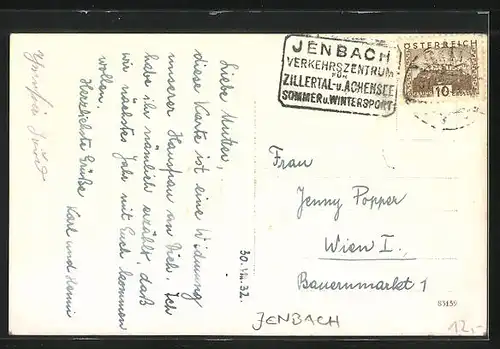 JENBACH
VERKEHRSZENTRUM
FÜR
ZILLERTAL-u.ACHENSEE
SOMMER u.WINTERSPORT
ÖSTERREICH
10
Liebe Mutter,
diese Karte ist eine Widmung
unserer Hausfrau an Dich. Ich
habe ihr nämlich erzählt, daß
wir nächstes Jahr mit Euch kommen
wollen.
Herzlichste Grüße
Karl und Henni
30.VIII.32.
Frau
Jenny Popper
Wien I.
Bauernmarkt 1
83159
JENBACH
12,-